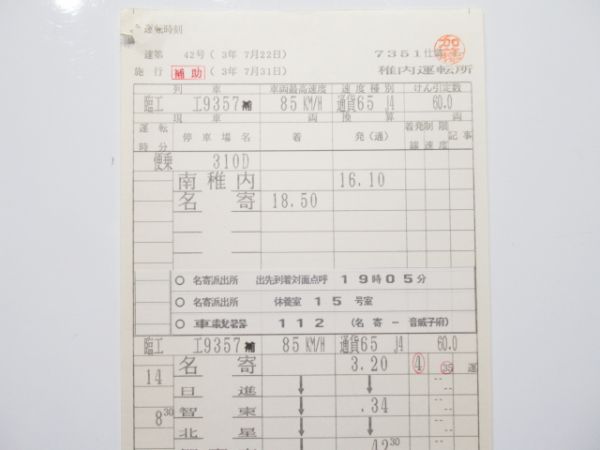 運転時刻
達第 42号 ( 3年 7月22日)
7351仕業
施行 補助 ( 3年 7月31日) 稚内運転所
列 車 車両最高速度 速度種別 けん引定数
臨工 工9357補 85KM/H 通貨65 J4 60.0
運転時分 現車 両 換算 両 着発線 制限速度 記事
停車場名 着 発(通)
便乗 310D
南稚内 16.10
名寄 18.50
○ 名寄派出所 出先到着対面点呼 19時05分
○ 名寄派出所 休養室 15 号室
○ 車載器 112 (名寄-音威子府)
臨工 工9357補 85KM/H 通貨65 J4 60.0
名寄 3.20 ④ 35 運
14 日進 ↓ ↓
8 30 智東 ↓ .34
北星 ↓ ↓
42 30